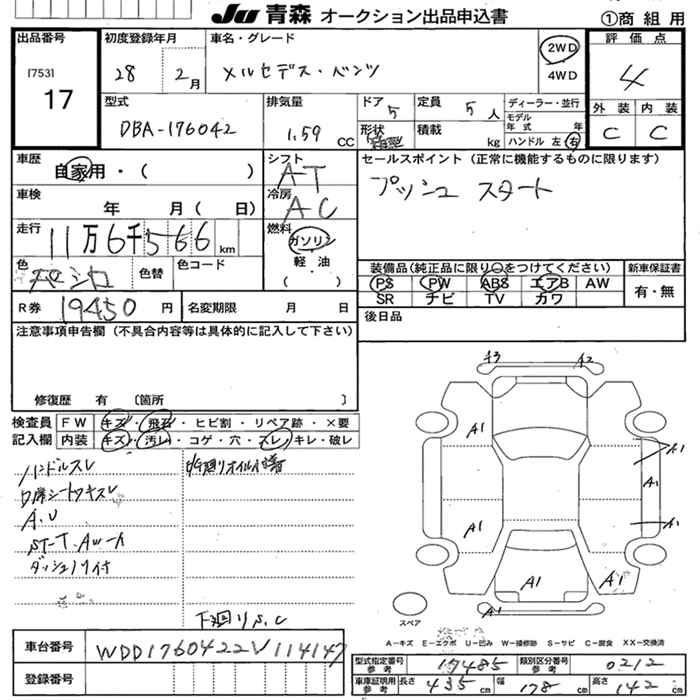 JU 青森 オークション出品申込書
①商組用
出品番号
17531
17
初度登録年月
28年2月
車名・グレード
メルセデス・ベンツ
2WD
4WD
評価点
4
外装 内装
C C
型式
DBA-176042
排気量
1.59 CC
ドア 5
形状
定員 5人
積載 kg
ディーラー・並行
モデル年式 年
ハンドル 左 右
車歴
自家用・( )
シフト
AT
冷房
AC
セールスポイント (正常に機能するものに限ります)
プッシュ スタート
車検
年 月( 日)
走行
11万6千566km
燃料
ガソリン
軽・油
( )
色
シロ
色替
色コード
装備品(純正品に限り○をつけてください)
PS PW ABS エアB AW
SR ナビ TV カワ
新車保証書
有・無
R券 19450円
名変期限 月 日
後日品
注意事項申告欄 (不具合内容等は具体的に記入して下さい)
修復歴 有 〔箇所 〕
検査員
記入欄
FW キズ・飛石・ヒビ割・リペア跡・×要
内装 キズ・汚レ・コゲ・穴・スレ・キレ・破レ
ハンドルスレ
D席シートワキスレ
A.U
ST-T.Aw-ん
ダッシュノリ付
下廻りS.C
A3 A2
A1
A1
A1
A1
A1
A1
A1
A1
A1
スペア
A-キズ E-エクボ U-凹み W-補修跡 S-サビ C-腐食 XX-交換済
車台番号
WDD1760422V114147
登録番号
型式指定番号 参考 17485
類別区分番号 参考 0212
車庫証明用 参考 長さ 435cm 幅 178cm 高さ 142cm